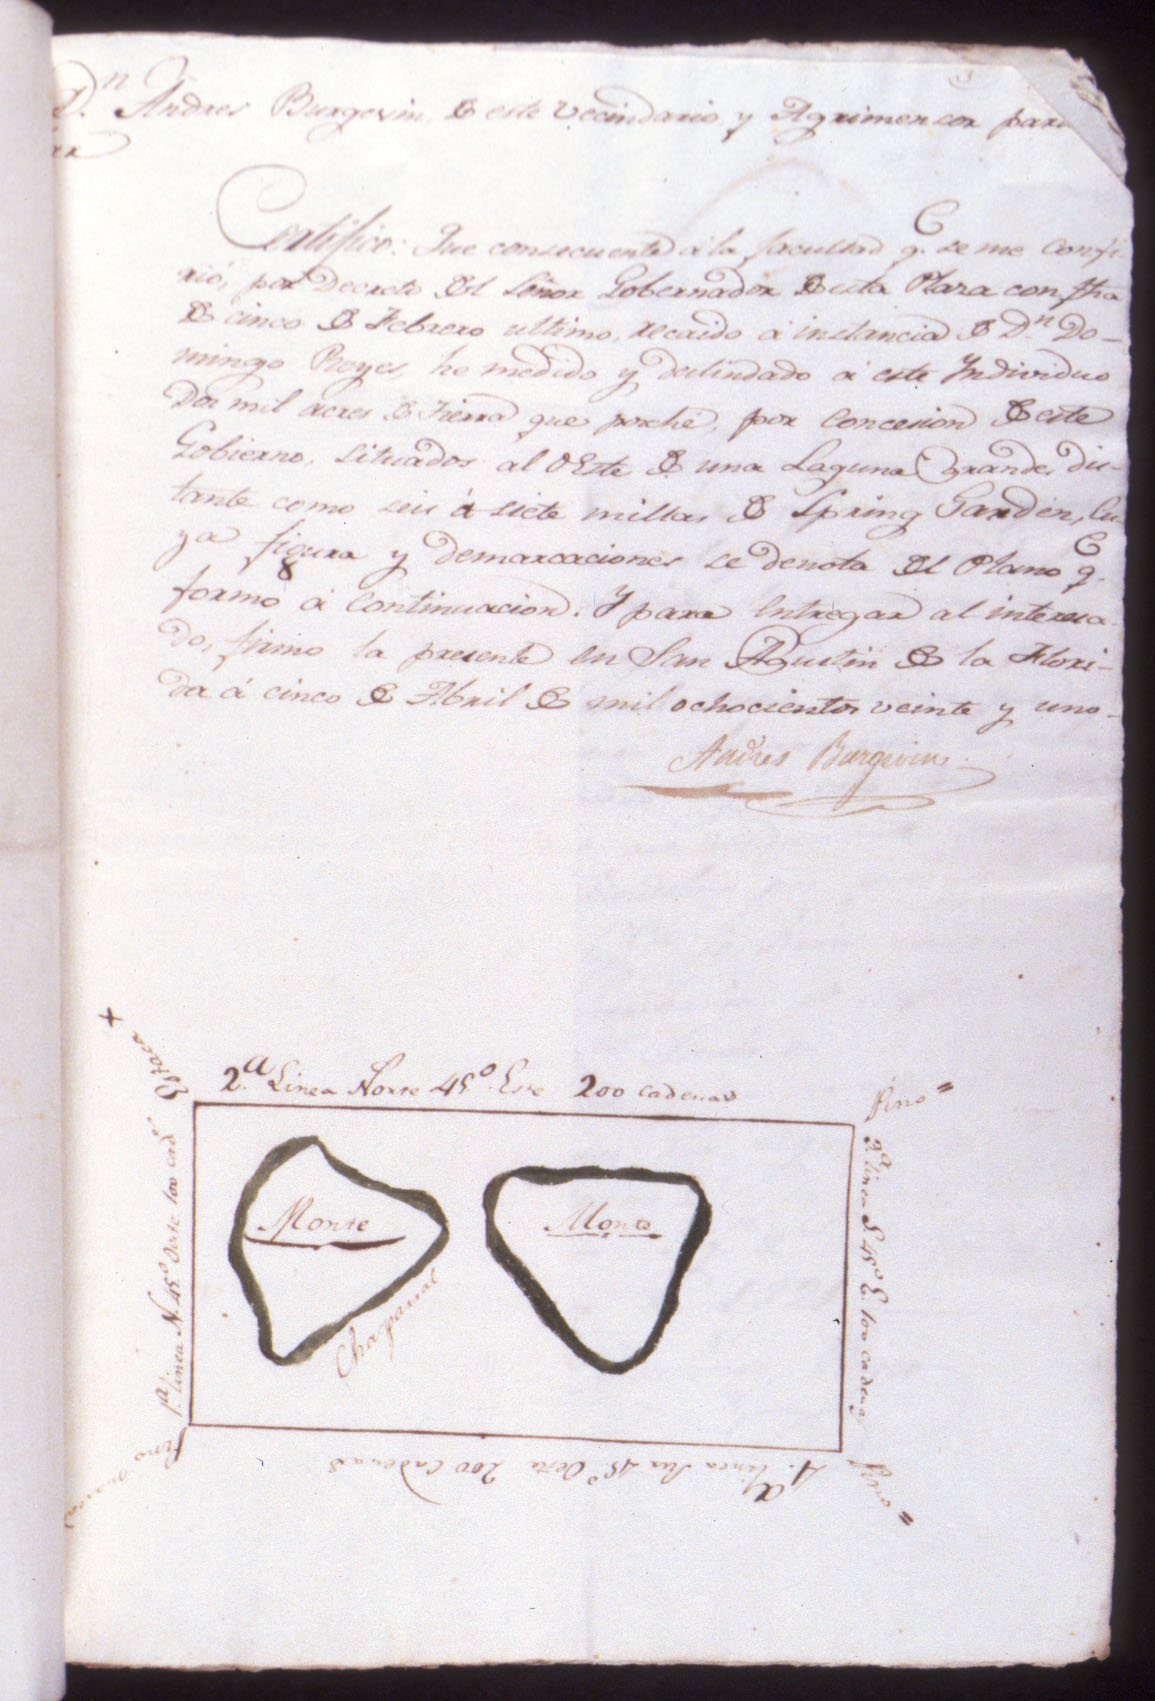 Dn. Andres Burgevin, de este Vecindario, y Agrimensor para
Certifico: Que consecuente á la facultad q.e se me confi-
rió, por Decreto del Señor Gobernador de esta Plaza con fha
de cinco de Febrero ultimo, recaido á instancia de Dn. Do-
mingo Reyes, he medido y deslindado á este Individuo
Dos mil acres de tierra que porhé, por concesion de este
Gobierno, situados al Oeste de una Laguna grande, dis-
tante como seis á siete millas de Spring Garden, cu-
ya figura y demarcaciones se denota del Plano q.e
formo á continuacion. Y para entregar al interesa-
do, firmo la presente en San Agustin de la Flori-
da á cinco de Abril de mil ochocientos veinte y uno-
Andres Burgevin
2.a Linea Norte 45° Este 200 cadenas
Estaca +
Pino =
1.a linea N. 45° Oeste 100 cad.s
3.a linea S. 45° E. 100 cadenas
Monte
Monte
Chaparral
4.a linea Sur 45° Oeste 200 Cadenas
Pino
Pino =